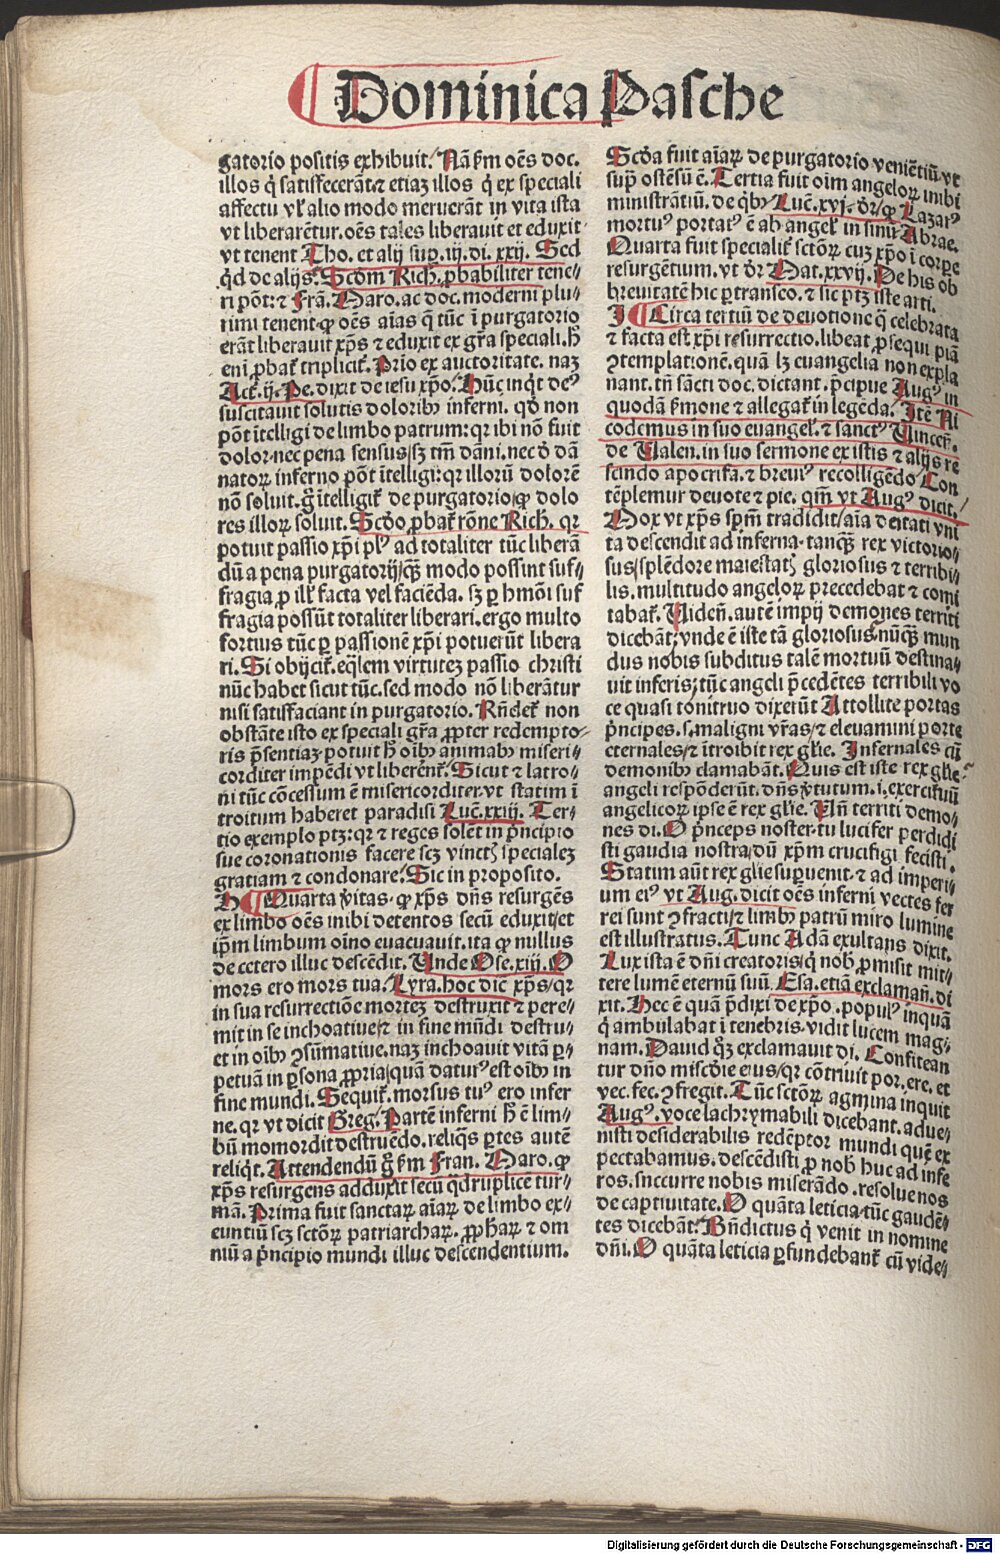 Dominica Pasche
gatorio positis exhibuit. Nã ẜm oẽs doc.
illos q̇ satiſfecerãt ⁊ etiaʒ illos q̇ ex speciali
affectu vl̓ alio modo meruerãt in vita ista
vt liberarẽtur. oẽs tales liberauit et eduxit
vt tenent Tho. et alij sup̱. iij. di. xxij. Sed
qͥd de alijs. Scdm Rich. ꝓbabiliter tene-
ri põt: ⁊ Frã. Maro. ac doc. moderni plu-
rimi tenent ꝙ oẽs aĩas q̃ tũc ĩ purgatorio
erãt liberauit xp̃s ⁊ eduxit ex gr̃a speciali. h̃
em̃ ꝓbat̃ triplicit̃. Prĩo ex auctoritate. naʒ
Act. ij. Pe. dixit de iesu xp̃o. Hũc inqͥt deꝰ
suscitauit solutis doloribꝰ inferni. qḋ non
põt ĩtelligi de limbo patrum: qꝛ ibi nõ fuit
dolor nec pena sensus/ sʒ tm̃ dãni. nec ḋ dã
natoꝝ inferno põt ĩtelligi: qꝛ illorũ dolorẽ
nõ soluit. g̊ ĩtelligit̃ de purgatorio/ ꝙ dolo
res illoꝝ soluit. Scḋo ꝓbat̃ rõne Rich. qꝛ
potuit passio xp̃i plꝰ ad totaliter tũc liberã
dũ a pena purgatorij/ qͣʒ modo possint suf-
fragia ꝓ ill̓ facta vel faciẽda. sʒ ꝑ hmõi suf
fragia possũt totaliter liberari. ergo multo
fortius tũc ꝑ passionẽ xp̃i potuerũt libera
ri. Si obijcit̃. eq̃lem virtuteʒ passio christi
nũc habet sicut tũc. sed modo nõ liberãtur
nisi satiſfaciant in purgatorio. Rñdet̃ non
obstãte isto ex speciali gr̃a ꝓpter redẽmpto-
ris p̃sentiaʒ potuit h̃ oĩbꝰ animabꝰ miseri-
corditer impẽdi vt liberẽnt̃. Sicut ⁊ latro-
ni tũc cõcessum ẽ misericorditer. vt statim ĩ
troitum haberet paradisi Luc̃. xxiij. Ter-
tio exemplo ptʒ: qꝛ ⁊ reges solẽt in p̃ncipio
sue coronationis facere scʒ vinctʒ specialeʒ
gratiam ⁊ condonare. Sic in proposito.
H Quarta ṽitas. ꝙ xp̃s dñs resurgẽs
ex limbo oẽs inibi detentos secũ eduxit/ et
ip̃m limbum oĩno euacuauit. ita ꝙ nullus
de cetero illuc descẽdit. Unde Ose. xiij. O
mors ero mors tua. Lyra. hoc dic̃ xp̃s/ qꝛ
in sua resurrectiõe morteʒ destruxit ⁊ pere-
mit in se inchoatiue/ ⁊ in fine mũdi destru-
et in oĩbꝰ ↄsũmatiue. naʒ inchoauit vitã ꝑ-
petuã in ꝑsona ꝓpria/ quã daturꝰ est oĩbꝰ in
fine mundi. Sequit̃. morsus tuꝰ ero infer
ne. qꝛ vt dicit Greg. Partẽ inferni h̃ ẽ lim-
bũ momordit destruẽdo. reliq̃s ꝑtes autẽ
reliqͥt. Attendendũ g̊ ẜm Fran. Maro. ꝙ
xp̃s resurgens adduxit secũ qͣdruplicẽ tur-
mã. Prima fuit sanctaꝝ aĩaꝝ de limbo ex-
euntiũ scʒ sctõꝝ patriarchaꝝ. ꝓphaꝝ ⁊ om
niũ a p̃ncipio mundi illuc descendentium.
Scḋa fuit aĩaꝝ de purgatorio veniẽtiũ. vt
supͣ ostẽsũ ẽ. Tertia fuit oĩm angeloꝝ inibi
ministrãtiũ. de qͥbꝰ Luc̃. xvj. dr̃/ ꝙ Lazarꝰ
mortuꝰ portatꝰ ẽ ab angel̓ in sinũ Abrae.
Quarta fuit specialit̃ sctõꝝ cuʒ xp̃o ĩ corꝑe
resurgẽtium. vt dr̃ Mat. xxvij. De his ob
breuitatẽ hic ꝑtranseo. ⁊ sic ptʒ iste arti.
I Circa tertiũ de deuotione q̃ celebrata
⁊ facta est xp̃i resurrectio. libeat ꝓsequi piã
ↄtemplationẽ. quã lʒ euangelia non expla
nant. tñ sãcti doc. dictant. p̃cipue Augꝰ in
quodã ẜmone ⁊ allegat̃ in legẽda. Itẽ Ni
codemus in suo euangel̓. ⁊ sanctꝰ Uincẽ.
de Ualen. in suo sermone ex istis ⁊ alijs re
scindo apocrifa. ⁊ breuiꝰ recolligẽdo Con
tẽplemur deuote ⁊ pie. qm̃ vt Augꝰ dicit,
Mox vt xp̃s sp̃m tradidit/ aĩa deitati vni
ta descendit ad inferna. tanqͣʒ rex victorio-
sus/ splẽdore maiestatʒ gloriosus ⁊ terribi-
lis. multitudo angeloꝝ precedebat ⁊ comi
tabat̃. Uiden̄. autẽ impij demones territi
dicebãt/ vnde ẽ iste tã gloriosus/ nũqͣʒ mun
dus nobis subditus talẽ mortuũ destina-
uit inferis/ tũc angeli p̃cedẽtes terribili vo
ce quasi tonitruo dixerũt Attollite portas
p̃ncipes. s. maligni vr̃as/ ⁊ eleuamini porte
eternales/ ⁊ ĩtroibit rex gl̃ie. Infernales cũ
demonibꝰ clamabãt. Quis est iste rex gl̃ie-
angeli respõderũt. dñs ṽtutum. i. exercituũ
angelicoꝝ ipse ẽ rex gl̃ie. Uñ territi demo-
nes di. O p̃nceps noster tu lucifer perdidi
sti gaudia nostra/ dũ xp̃m crucifigi fecisti.
Statim aũt rex gl̃ie supuenit. ⁊ ad imperi-
um eiꝰ vt Aug. dicit oẽs inferni vectes fer
rei sunt ↄfracti/ ⁊ limbꝰ patrũ miro lumine
est illustratus. Tunc Adã exultans dixit.
Lux ista ẽ dñi creatoris/ q̇ nob̓ ꝓmisit mit-
tere lumẽ eternũ suũ. Esa. etiã exclaman̄. di
xit. Hec ẽ quã p̃dixi de xp̃o. populꝰ inquã
q̇ ambulabat ĩ tenebris. vidit lucem mag-
nam. Dauid qͦʒ exclamauit di. Confitean
tur dño miscḋie eius/ qꝛ cõtriuit por. ere. et
vec. fec. ↄfregit. Tũc sctõꝝ agmina inquit
Augꝰ. voce lachrymabili dicebant. adue-
nisti desiderabilis redẽptor mundi quẽ ex
pectabamus. descẽdisti ꝓ nob̓ huc ad infe
ros. succurre nobis miserãdo. resolue nos
de captiuitate. O quãta leticia tũc gaudẽ-
tes dicebãt. Bñdictus q̇ venit in nomine
dñi. O quãta leticia ꝑfundebant̃ cũ vide-
Digitalisierung gefördert durch die Deutsche Forschungsgemeinschaft - DFG